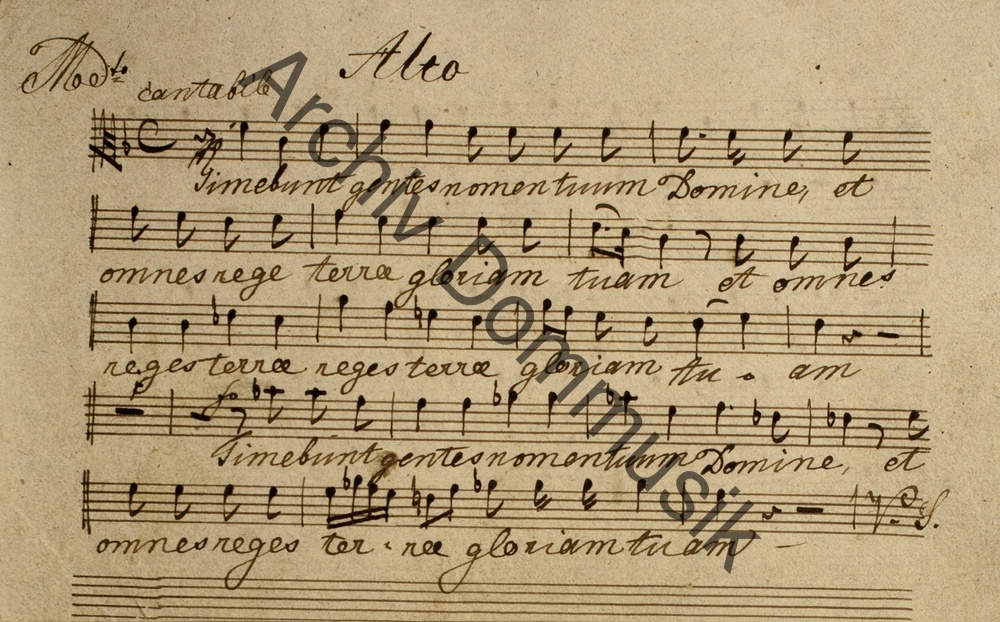 Alto
Mod.to cantabile
Timebunt gentes nomen tuum Domine, et
omnes rege terræ gloriam tuam et omnes
reges terræ reges terræ gloriam tu - am
fo
Timebunt gentes nomen tuum Domine, et
omnes reges ter - ræ gloriam tuam -
V. S.
Archiv Dommusik